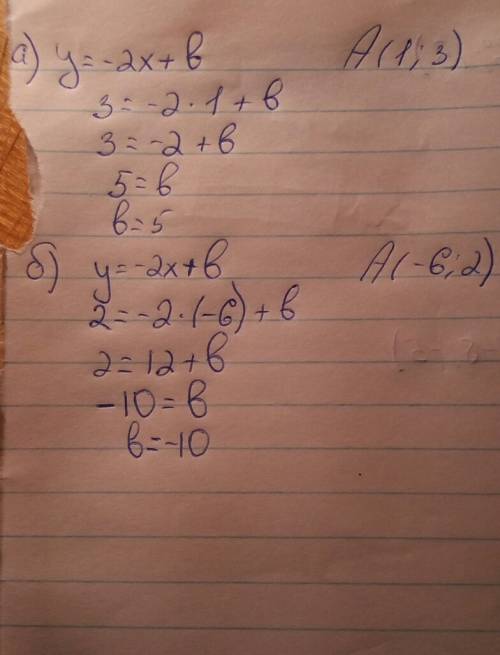 а) y=-2x+b A(1;3)
3=-2·1+b
3=-2+b
5=b
b=5
б) y=-2x+b A(-6;2)
2=-2·(-6)+b
2=12+b
-10=b
b=-10